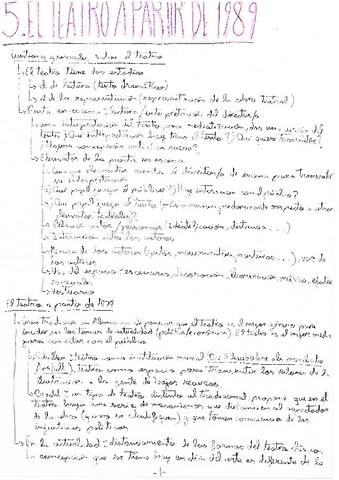 5. EL TEATRO A PARTIR DE 1989
Cuestiones generales sobre el teatro
↳ El teatro tiene dos estadios
↳ el de lectura (texto dramático)
↳ el de la representación (representación de la obra teatral)
↳ Puesta en escena: lectura / interpretación del director/a
↳ una interpretación del texto, una dar una visión del
texto ¿Qué interpretación hay tras el texto? ¿Qué quiere transmitir?
¿Alguna concepción del arte nueva?
↳ Elementos de la puesta en escena
↳ Con que elementos cuenta el director/a de escena para transmitir
su interpretación
↳ ¿Qué papel juega el público? ¿Hay interacción con el público?
↳ ¿Qué papel juega el texto (más o menos predominante respecto a otros
elementos teatrales)?
↳ Relación actor/personaje (identificación, distancia...)
↳ Interacción entre los actores
↳ de los actores (gestos, movimientos, ...), voz de
los actores
↳ Uso del espacio: escenario, decoración, iluminación, música, efectos
↳ Vestuario
El teatro a partir de 1989
↳ Gran tradición en Alemania de pensar que el teatro es el mejor género para
los temas de actualidad (política/economía). El teatro es el mejor medio
para conectar con el público
↳ Schiller: teatro como institución moral (Die Schaubühne als moralische
Anstalt), teatro como espacio para transmitir los valores de la
Ilustración a la gente de bajos recursos
↳ Brecht: un tipo de teatro distinto al tradicional, propone que en el
teatro haya una serie de mecanismos que distancien al espectador
de la obra (que no se identifiquen) y que tomen consciencia de las
injusticias políticas
↳ En la actualidad: distanciamiento de las formas del teatro clásico.
La concepción que se tiene hoy en día del arte es diferente de la
-1-